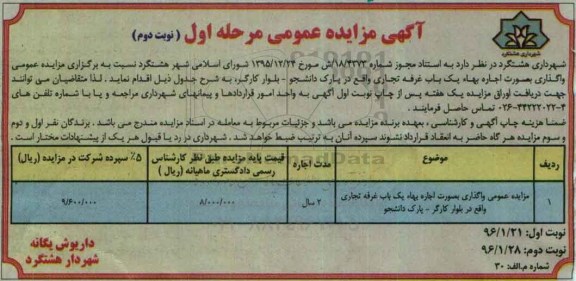 آگهی مزایده عمومی مرحله اول ( نوبت دوم )
شهرداری هشتگرد
شهرداری هشتگرد در نظر دارد به استناد مجوز شماره ۱۸/۴۳۷۳/ش مورخ ۱۳۹۵/۱۲/۲۴ شورای اسلامی شهر هشتگرد نسبت به برگزاری مزایده عمومی
واگذاری بصورت اجاره بهاء یک باب غرفه تجاری واقع در پارک دانشجو - بلوار کارگر، به شرح جدول ذیل اقدام نماید . لذا متقاضیان می توانند
جهت دریافت اوراق مزایده یک هفته پس از چاپ نوبت اول آگهی به واحد امور قراردادها و پیمانهای شهرداری مراجعه و یا با شماره تلفن های
۴-۴۴۲۲۲۰۲۲-۰۲۶ تماس حاصل فرمایند .
ضمنا هزینه چاپ آگهی و کارشناسی ، بعهده برنده مزایده می باشد و جزئیات مربوط به معامله در اسناد مزایده مندرج می باشد . برندگان نفر اول و دوم
و سوم مزایده هر گاه حاضر به انعقاد قرارداد نشوند سپرده آنان به ترتیب ضبط خواهد شد . شهرداری در رد یا قبول هر یک از پیشنهادات مختار است .
ردیف موضوع مدت اجاره قیمت پایه مزایده طبق نظر کارشناس رسمی دادگستری ماهیانه (ریال ) ۵٪ سپرده شرکت در مزایده (ریال)
۱ مزایده عمومی واگذاری بصورت اجاره بهاء یک باب غرفه تجاری واقع در بلوار کارگر - پارک دانشجو ۲ سال ۸/۰۰۰/۰۰۰ ۹/۶۰۰/۰۰۰
نوبت اول: ۹۶/۱/۲۱
نوبت دوم: ۹۶/۱/۲۸
شماره م.الف: ۳۰
داریوش یگانه
شهردار هشتگرد